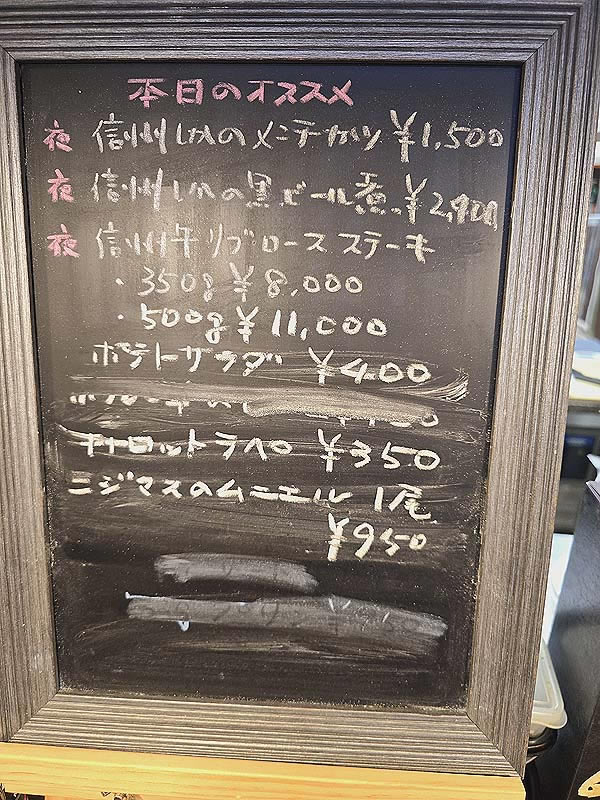 本日のオススメ
夜 信州しかのメンチカツ ¥1,500
夜 信州しかの黒ビール煮 ¥2,900
夜 信州牛リブロースステーキ
・350g ¥8,000
・500g ¥11,000
ポテトサラダ ¥400
キャロットラペ ¥350
ニジマスのムニエル 1尾
¥950